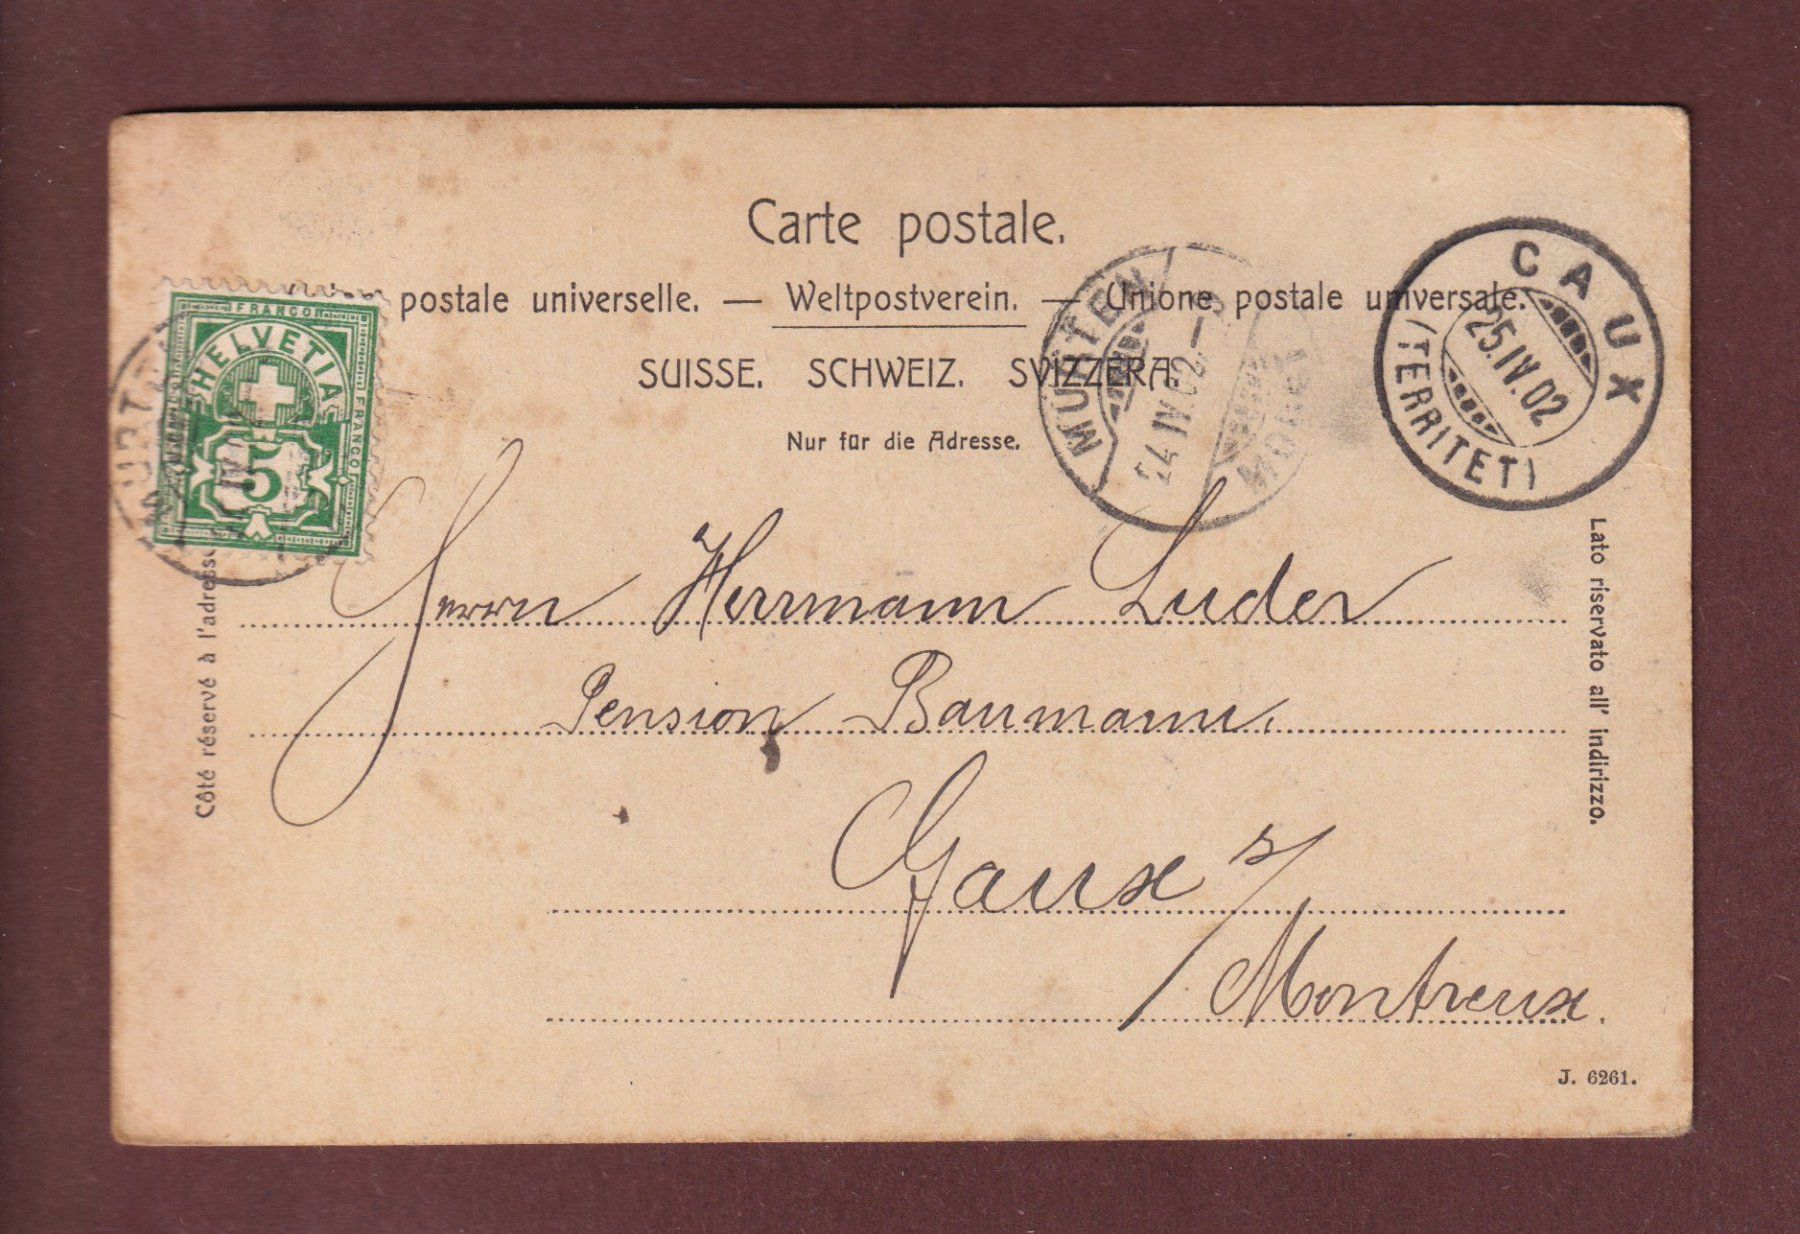 Carte postale.
postale universelle. — Weltpostverein. — Unione postale universale.
SUISSE. SCHWEIZ. SVIZZERA.
Nur für die Adresse.
FRANCO
HELVETIA
FRANCO
5
MURTEN
24 IV.02
Morat
CAUX
25.IV.02
(TERRITET)
Côté réservé à l'adresse
Herrn Herrmann Luder
Pension Baumann.
Caux s/
Montreux.
Lato riservato all' indirizzo.
J. 6261.